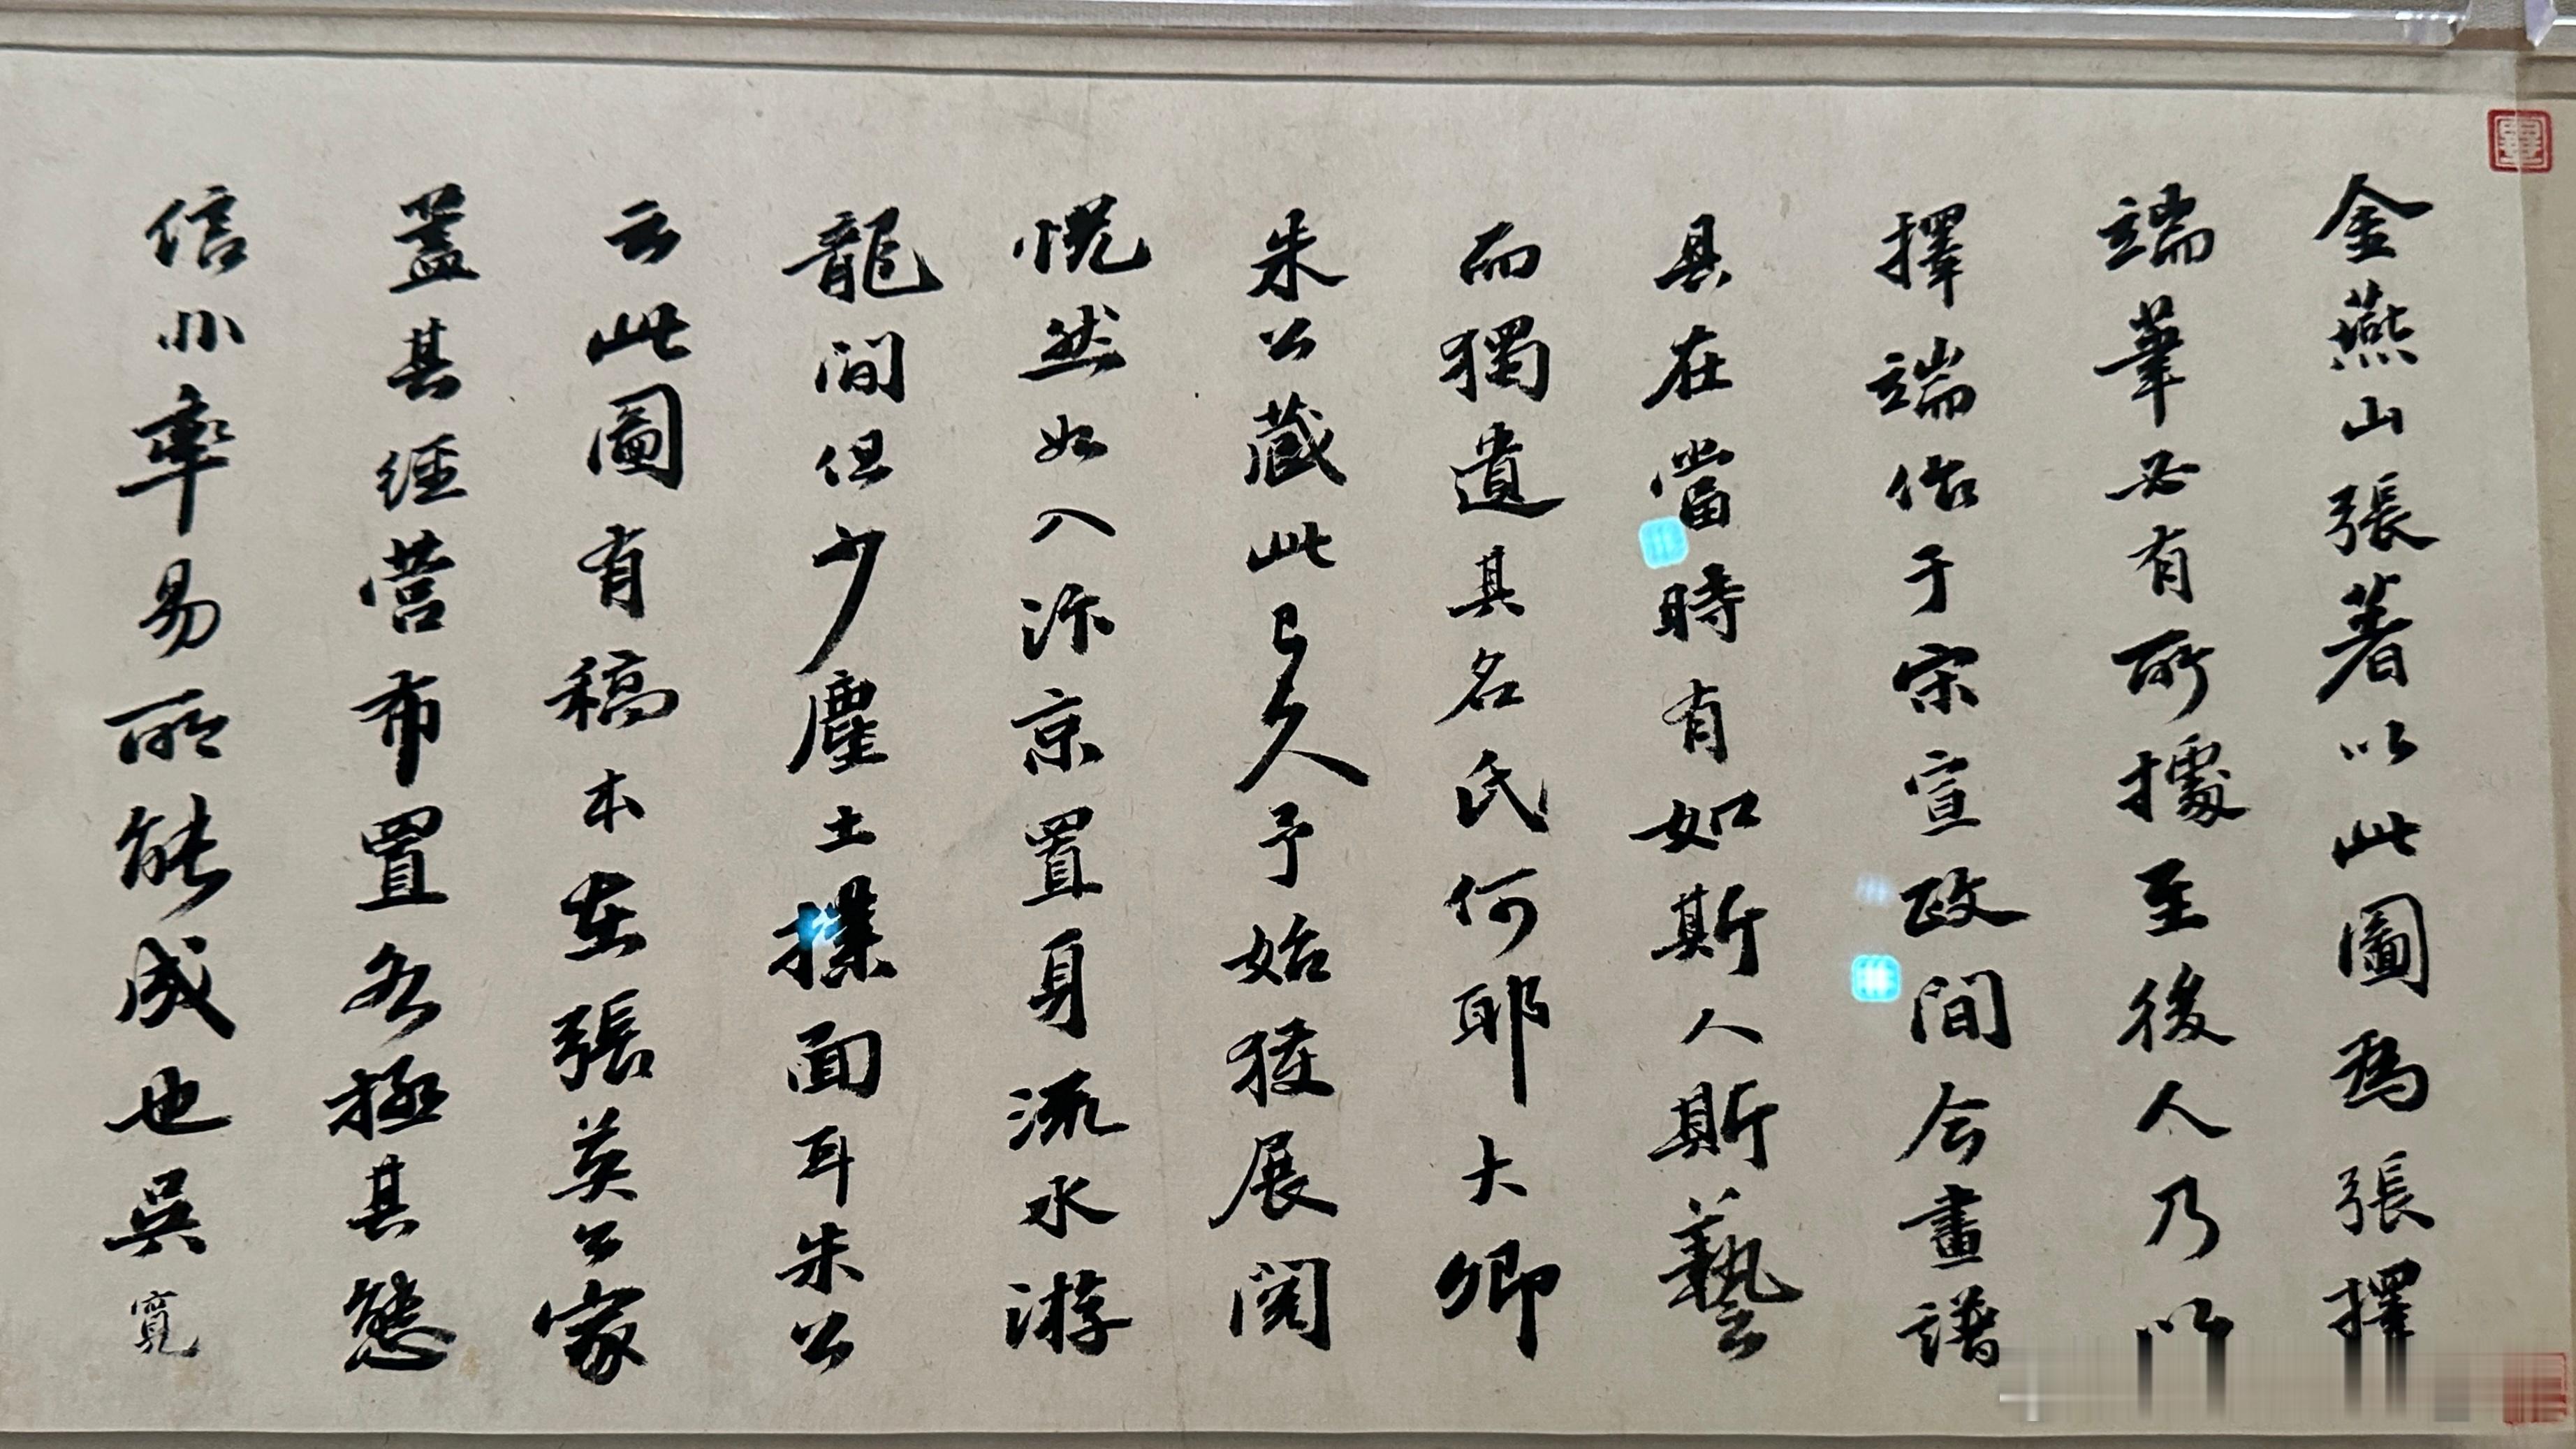 金燕山張著以此圖為張擇
端筆必有所據至後人乃以
擇端作于宋宣政間今畫譜
具在當時有如斯人斯藝
而獨遺其名氏何耶大卿
朱公藏此已久予始獲展閱
怳然如入汴京置身流水游
龍間但少塵土撲面耳朱公
云此圖有稿本在張英公家
蓋其經營布置各極其態
信非率易所能成也吳寬